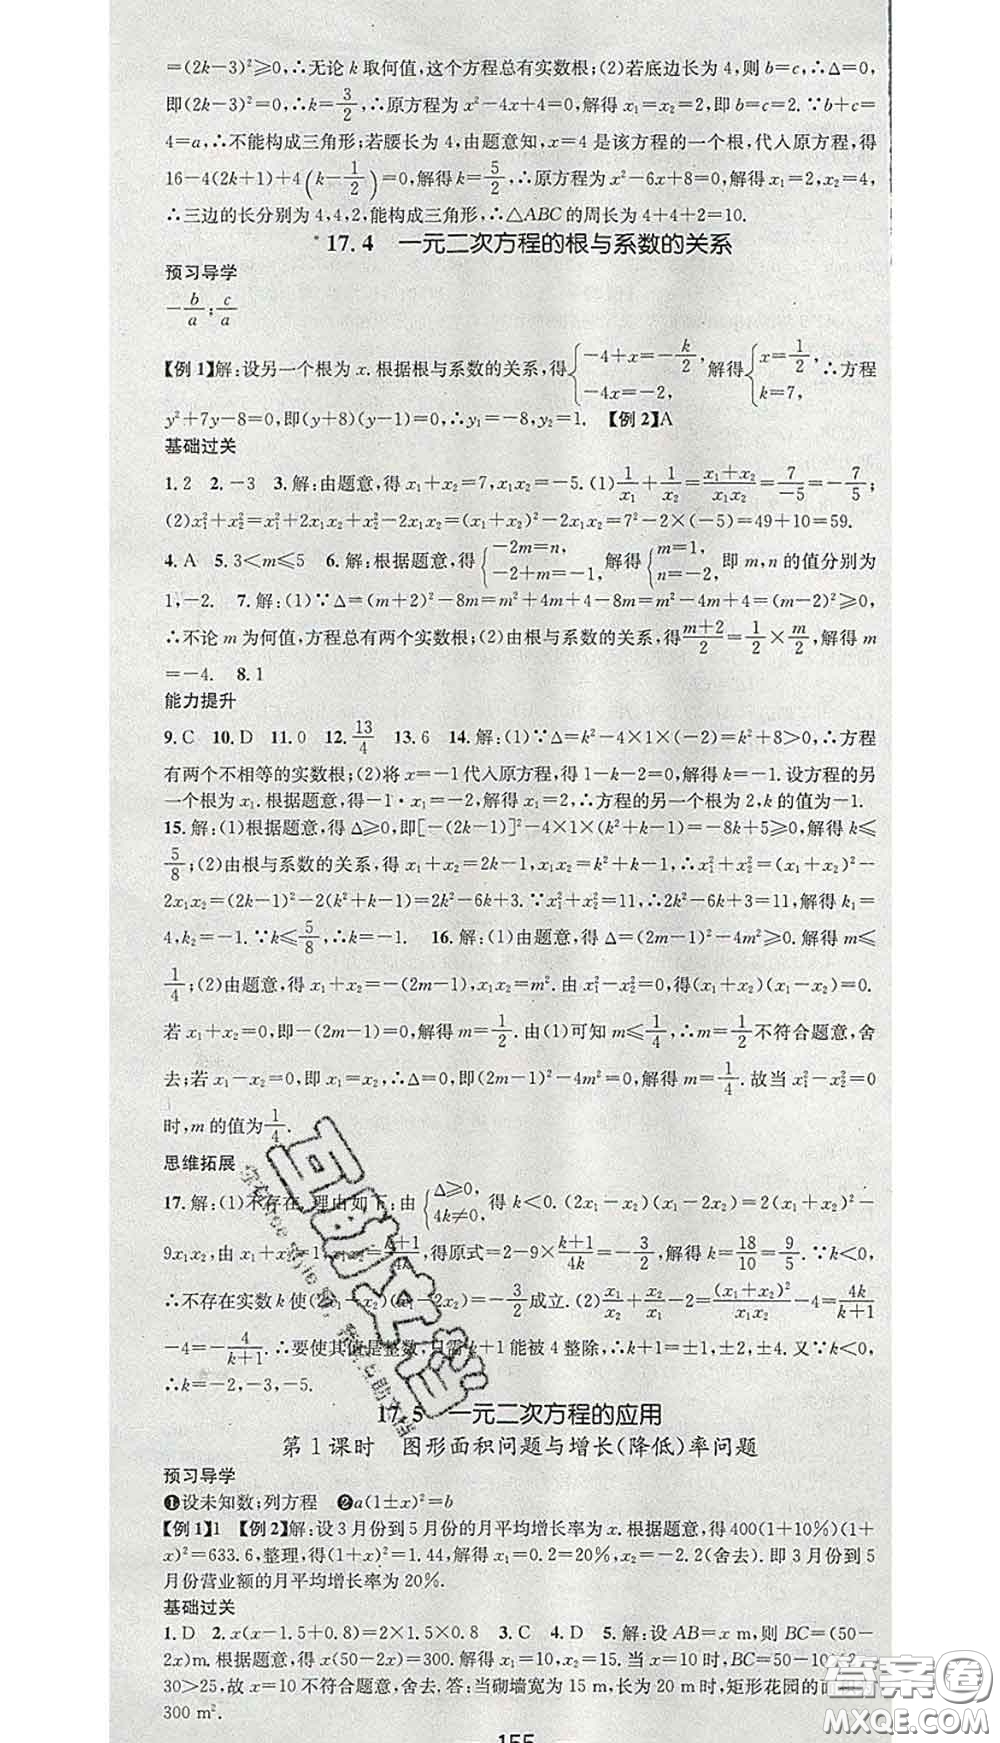 =(2k-3)²≥0,∴无论k取何值,这个方程总有实数根;(2)若底边长为4,则b=c,∴Δ=0,
即(2k-3)²=0,∴k=3/2,∴原方程为x²-4x+4=0,解得x₁=x₂=2,即b=c=2.∵b+c=
4=a,∴不能构成三角形;若腰长为4,由题意知,x=4是该方程的一个根,代入原方程,得
16-4(2k+1)+4(k-1/2)=0,解得k=5/2,∴原方程为x²-6x+8=0,解得x₁=2,x₂=4,
∴三边的长分别为4,4,2,能构成三角形,∴△ABC的周长为4+4+2=10.
17.4 一元二次方程的根与系数的关系
预习导学
-b/a;c/a
【例1】解:设另一个根为x.根据根与系数的关系,得{-4+x=-k/2, -4x=-2, 解得{x=1/2, k=7, ∴方程
y²+7y-8=0,即(y+8)(y-1)=0,∴y₁=-8,y₂=1. 【例2】A
基础过关
1.2 2.-3 3.解:由题意,得x₁+x₂=7,x₁x₂=-5.(1)1/x₁+1/x₂=(x₁+x₂)/(x₁x₂)=7/(-5)=-7/5;
(2)x₁²+x₂²=x₁²+2x₁x₂+x₂²-2x₁x₂=(x₁+x₂)²-2x₁x₂=7²-2×(-5)=49+10=59.
4.A 5.3<m≤5 6.解:根据题意,得{-2m=n, -2+m=-1, 解得{m=1, n=-2, 即m,n的值分别为
1,-2. 7.解:(1)∵Δ=(m+2)²-8m=m²+4m+4-8m=m²-4m+4=(m-2)²≥0,
∴不论m为何值,方程总有两个实数根;(2)由根与系数的关系,得(m+2)/2=1/2×m/2,解得m
=-4. 8.1
能力提升
9.C 10.D 11.0 12.13/4 13.6 14.解:(1)∵Δ=k²-4×1×(-2)=k²+8>0,∴方程
有两个不相等的实数根;(2)将x=-1代入原方程,得1-k-2=0,解得k=-1.设方程的另
一个根为x₁.根据题意,得-1·x₁=-2,解得x₁=2,∴方程的另一个根为2,k的值为-1.
15.解:(1)根据题意,得Δ≥0,即[-(2k-1)]²-4×1×(k²+k-1)=-8k+5≥0,解得k≤
5/8;(2)由根与系数的关系,得x₁+x₂=2k-1,x₁x₂=k²+k-1,∴x₁²+x₂²=(x₁+x₂)²-
2x₁x₂=(2k-1)²-2(k²+k-1)=2k²-6k+3.∵x₁²+x₂²=11,∴2k²-6k+3=11,解得k₁=
4,k₂=-1.∵k≤5/8,∴k=-1. 16.解:(1)由题意,得Δ=(2m-1)²-4m²≥0.解得m≤
1/4;(2)由题意,得x₁+x₂=-(2m-1),x₁x₂=m².由x₁²-x₂²=0,得(x₁+x₂)(x₁-x₂)=0.
若x₁+x₂=0,即-(2m-1)=0,解得m=1/2.由(1)可知m≤1/4,∴m=1/2不符合题意,舍
去;若x₁-x₂=0,即x₁=x₂,∴Δ=0,即(2m-1)²-4m²=0,解得m=1/4.故当x₁²-x₂²=0
时,m的值为1/4.
思维拓展
17.解:(1)不存在.理由如下:由{Δ≥0, 4k≠0, 得k<0.(2x₁-x₂)(x₁-2x₂)=2(x₁+x₂)²-
9x₁x₂,由x₁+x₂=1,x₁x₂=(k+1)/4k,得原式=2-9×(k+1)/4k=-3/2,解得k=18/10=9/5.∵k<0,
∴不存在实数k使(2x₁-x₂)(x₁-2x₂)=-3/2成立.(2)x₁/x₂+x₂/x₁-2=(x₁+x₂)²/(x₁x₂)-4=4k/(k+1)
-4=-4/(k+1).∴要使其值是整数,只需k+1能被4整除,∴k+1=±1,±2,±4.又∵k<0,
∴k=-2,-3,-5.
17.5 一元二次方程的应用
第1课时 图形面积问题与增长(降低)率问题
预习导学
❶设未知数;列方程 ❷a(1±x)²=b
【例1】1 【例2】解:设3月份到5月份的月平均增长率为x.根据题意,得400(1+10%)(1+
x)²=633.6,整理,得(1+x)²=1.44,解得x₁=0.2=20%,x₂=-2.2(舍去).即3月份到5
月份营业额的月平均增长率为20%.
基础过关
1.D 2.x(x-1.5+0.8)=2×1.5×0.8 3.C 4.D 5.解:设AB=x m,则BC=(50-
2x)m.根据题意,得x(50-2x)=300.解得x₁=10,x₂=15.当x=10时,BC=50-10×2=
30>25,故x=10不符合题意,舍去.答:当砌墙宽为15 m,长为20 m时,矩形花园的面积
300 m².
155
互助文档
答案圈
MXQE.COM